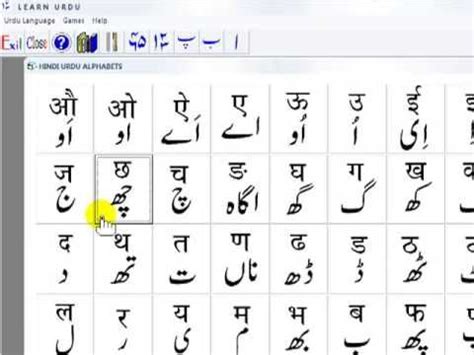 LEARN URDU
Urdu Language Games Help
Exit Close ? ۶۵ ۱۲ پ ب ا
HINDI URDU ALPHABETS
औ ओ ऐ ए ऊ उ ई
اَو او اَے اے اُو اُ اِی
ज छ च ङ घ ग ख
ج چھ چ اگاہ گھ گ کھ
द थ त ण ढ ड ठ
د تھ ت ناں ڈھ ڈ ٹھ
ल र य म भ ब फ
ل ر ی م بھ ب پھ